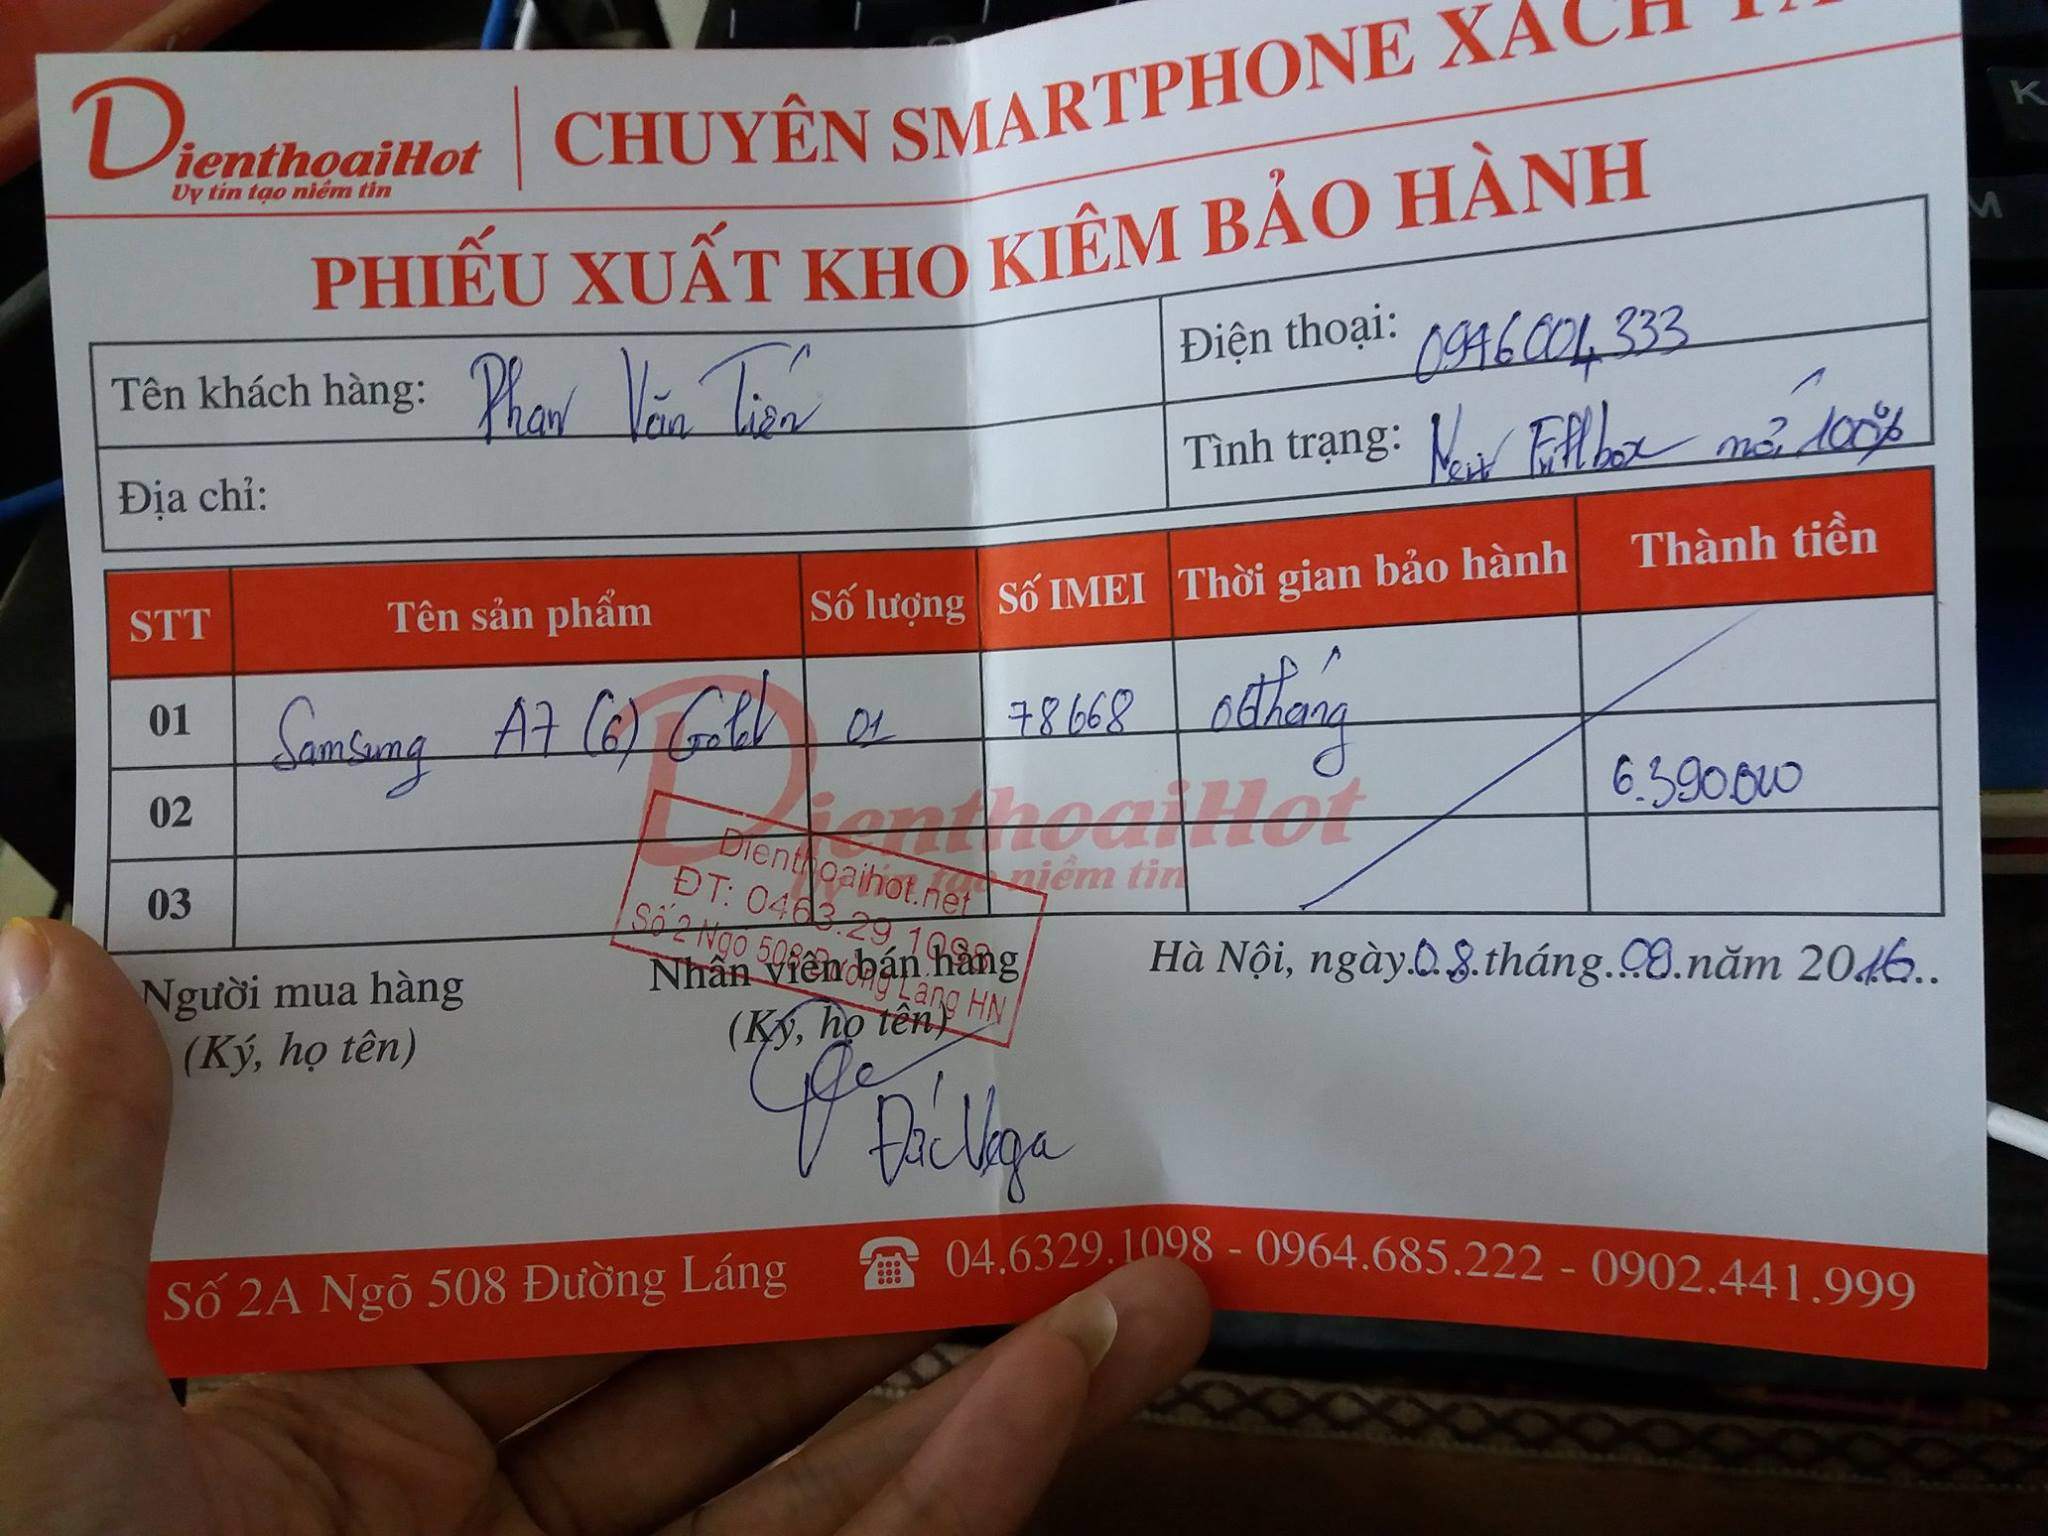 DienthoaiHot
Uy tín tạo niềm tin
CHUYÊN SMARTPHONE XÁCH
PHIẾU XUẤT KHO KIÊM BẢO HÀNH
Tên khách hàng: Phan Văn Tiến
Điện thoại: 0946004333
Địa chỉ:
Tình trạng: New Fullbox mới 100%
STT Tên sản phẩm Số lượng Số IMEI Thời gian bảo hành Thành tiền
01 Samsung A7 (6) Gold 01 78668 06 tháng
02 6.390.000
03
DienthoaiHot
Uy tín tạo niềm tin
Dienthoaihot.net
ĐT: 0463.29.1098
Số 2 Ngõ 508 Đường Láng HN
Người mua hàng
(Ký, họ tên)
Nhân viên bán hàng
(Ký, họ tên)
Đức Vega
Hà Nội, ngày 08 tháng 09 năm 2016
Số 2A Ngõ 508 Đường Láng 04.6329.1098 - 0964.685.222 - 0902.441.999